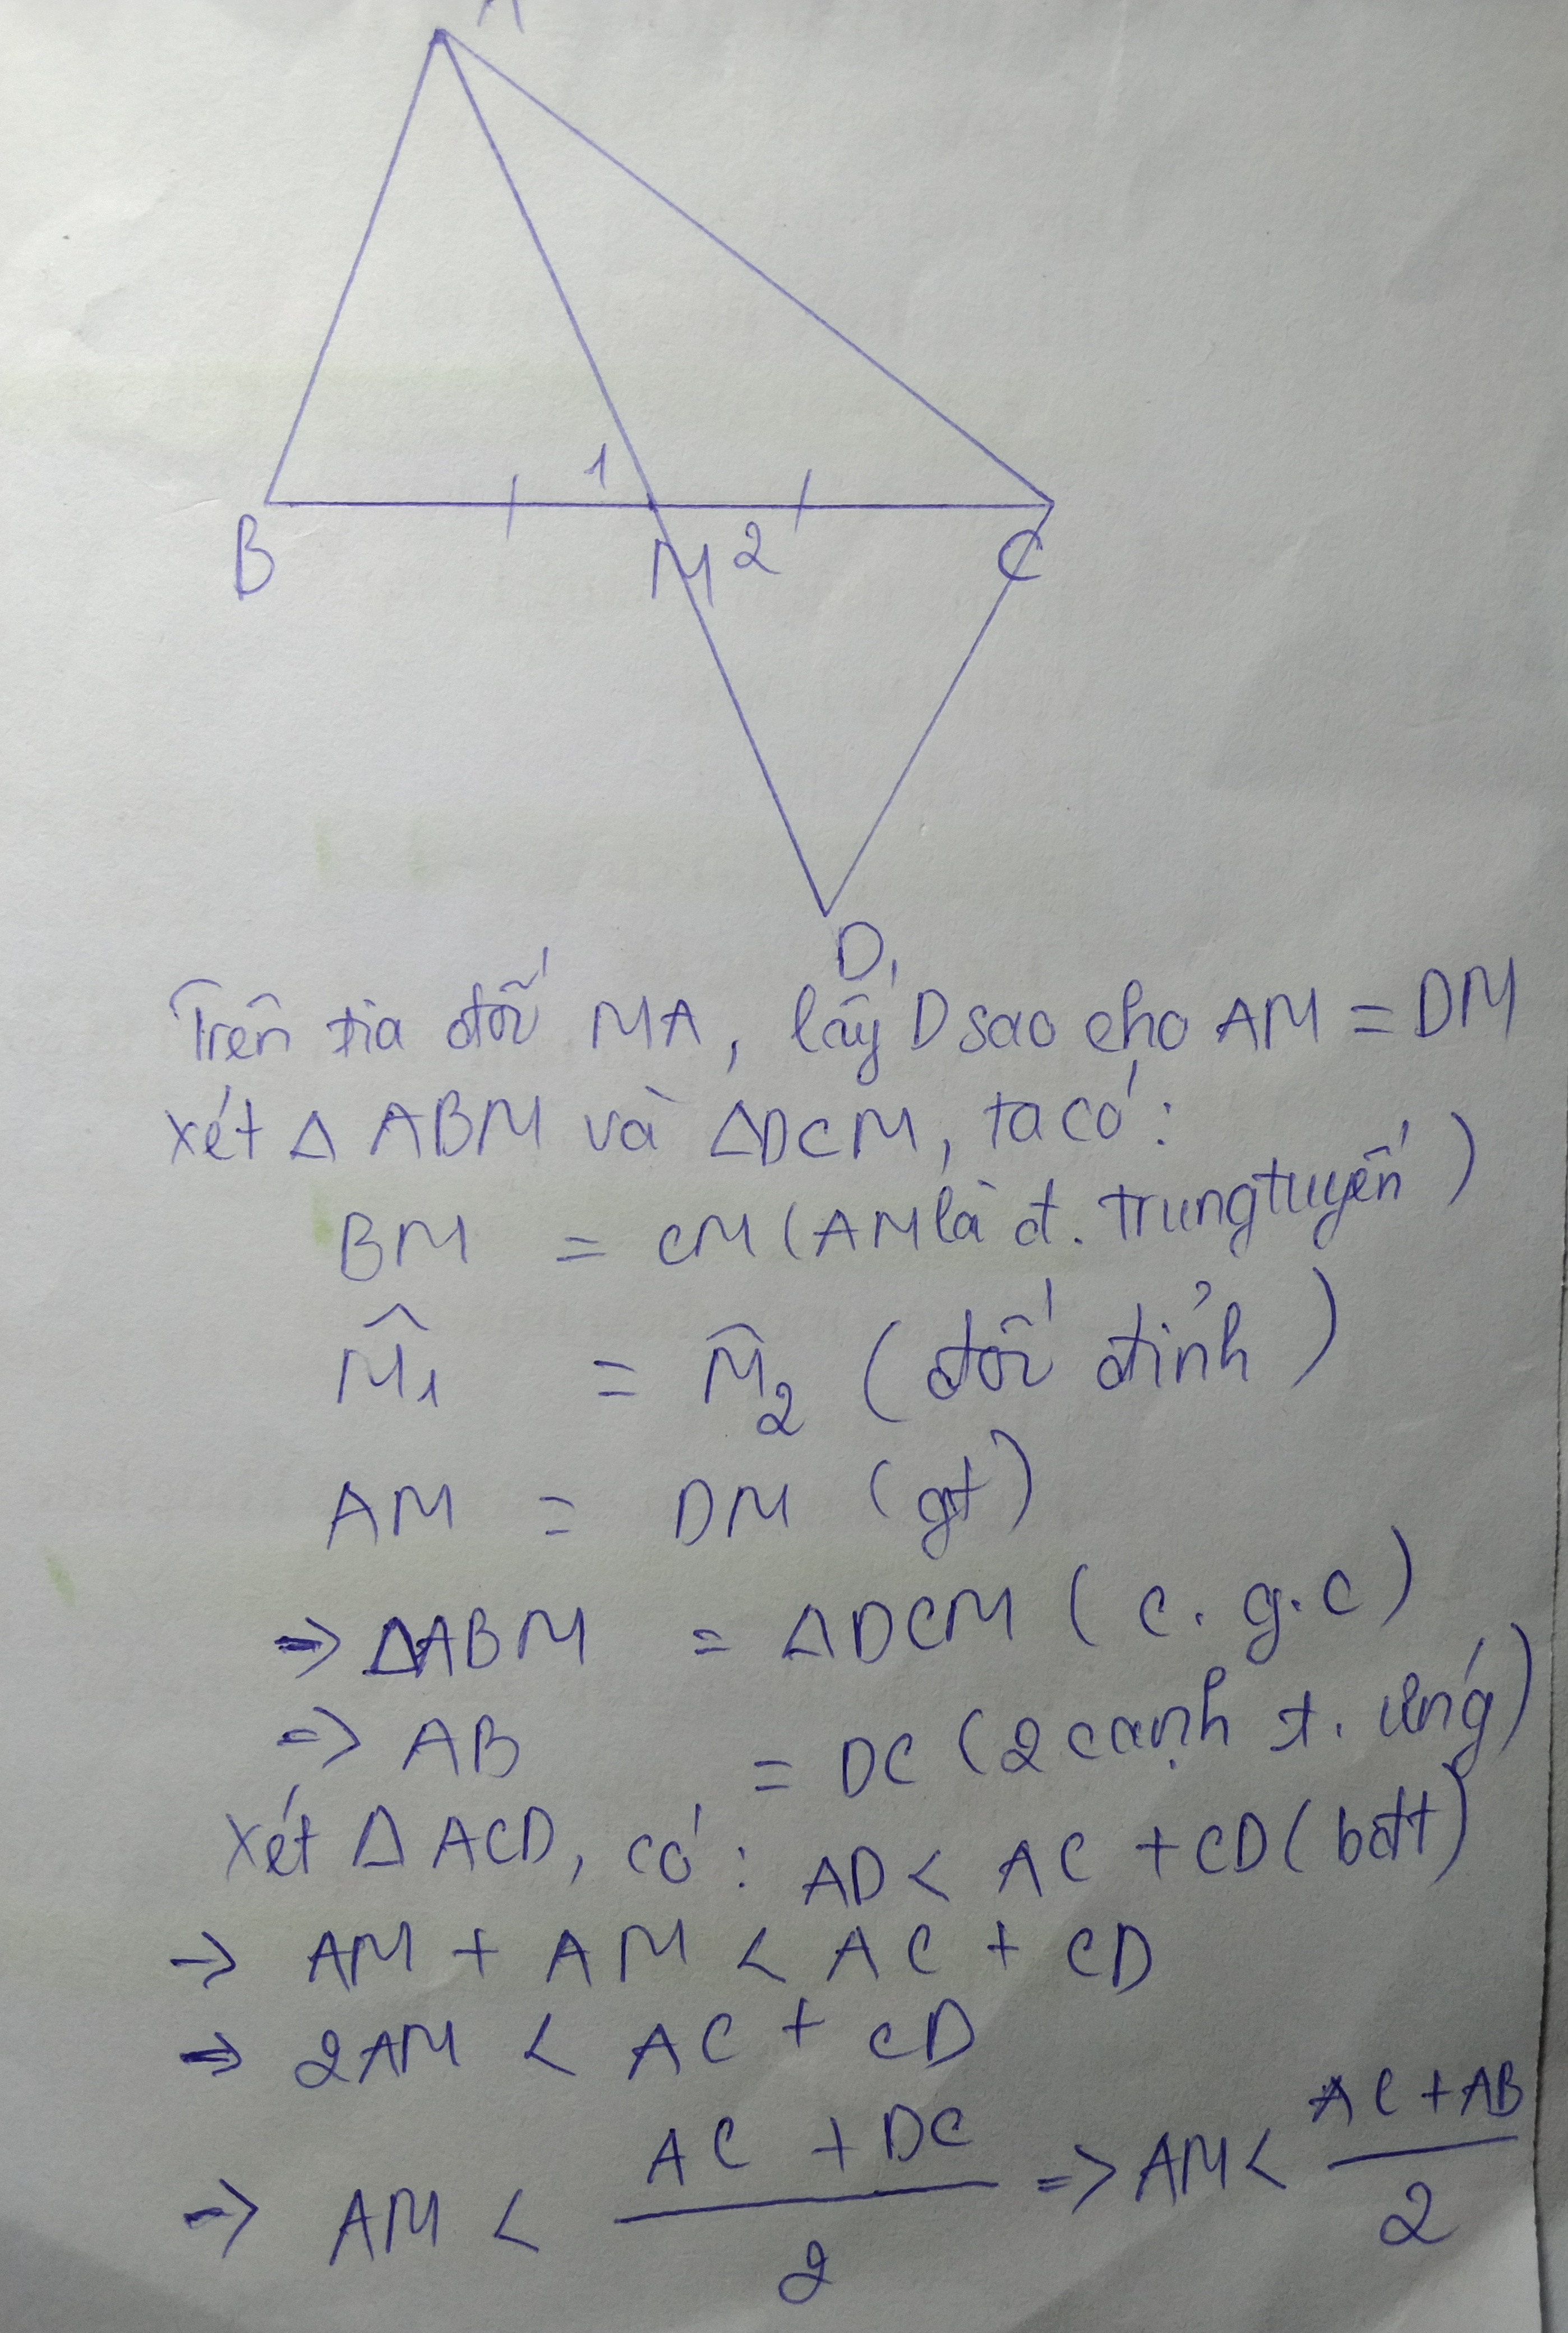 A
1
B
M 2
C
D
Trên tia đối MA, lấy D sao cho AM = DM
xét Δ ABM và ΔDCM, ta có:
BM = CM (AM là đ. trung tuyến)
M̂₁ = M̂₂ (đối đỉnh)
AM = DM (gt)
=> ΔABM = ΔDCM (c.g.c)
=> AB = DC (2 cạnh t. ứng)
xét Δ ACD, có: AD < AC + CD (bđtt)
-> AM + AM < AC + CD
=> 2AM < AC + CD
-> AM < (AC + DC)/2 => AM < (AC + AB)/2